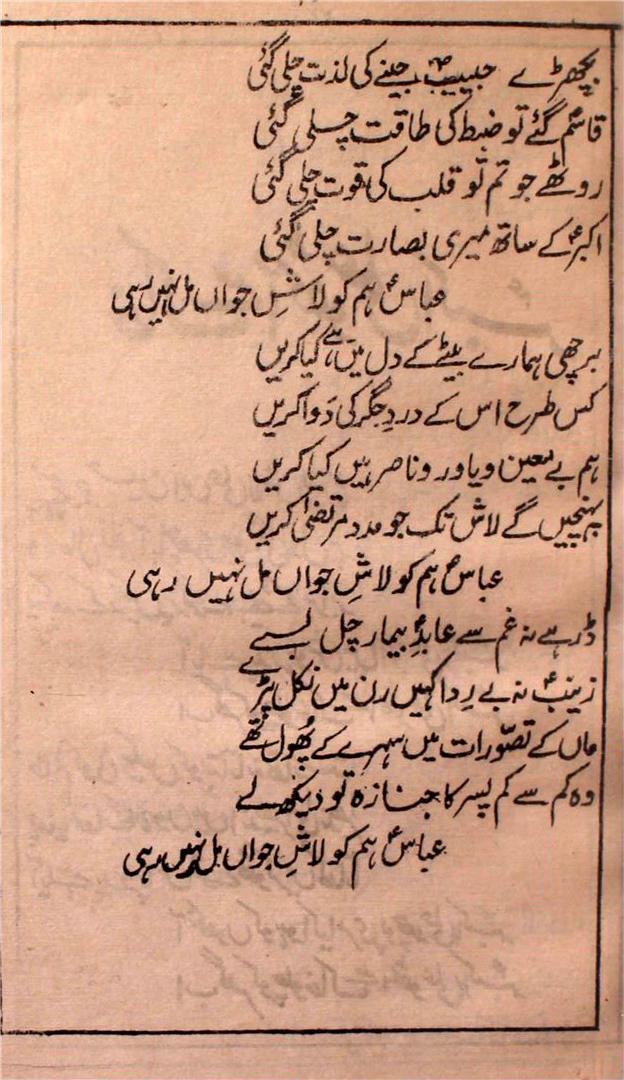 بچھڑے حبیبؑ جینے کی لذت چلی گئی
قاسمؑ گئے تو ضبط کی طاقت چلی گئی
روٹھے جو تم تو قلب کی قوت چلی گئی
اکبرؑ کے ساتھ میری بصارت چلی گئی
عباسؑ ہم کو لاشِ جواں مل نہیں رہی
برچھی ہمارے بیٹے کے دل میں ہے کیا کریں
کس طرح اس کے دردِ جگر کی دَوا کریں
ہم بے معین و یاور و ناصر ہیں کیا کریں
پہنچیں گے لاش تک جو مدد مرتضیٰؑ کریں
عباسؑ ہم کو لاشِ جواں مل نہیں رہی
ڈر ہے نہ غم سے عابدِؑ بیمار چل بسے
زینبؑ نہ بے رِدا کہیں رن میں نکل پڑے
ماں کے تصوّرات میں سہرے کے پُھول تھے
وہ کم سے کم پسر کا جنازہ تو دیکھ لے
عباسؑ ہم کو لاشِ جواں مل نہیں رہی